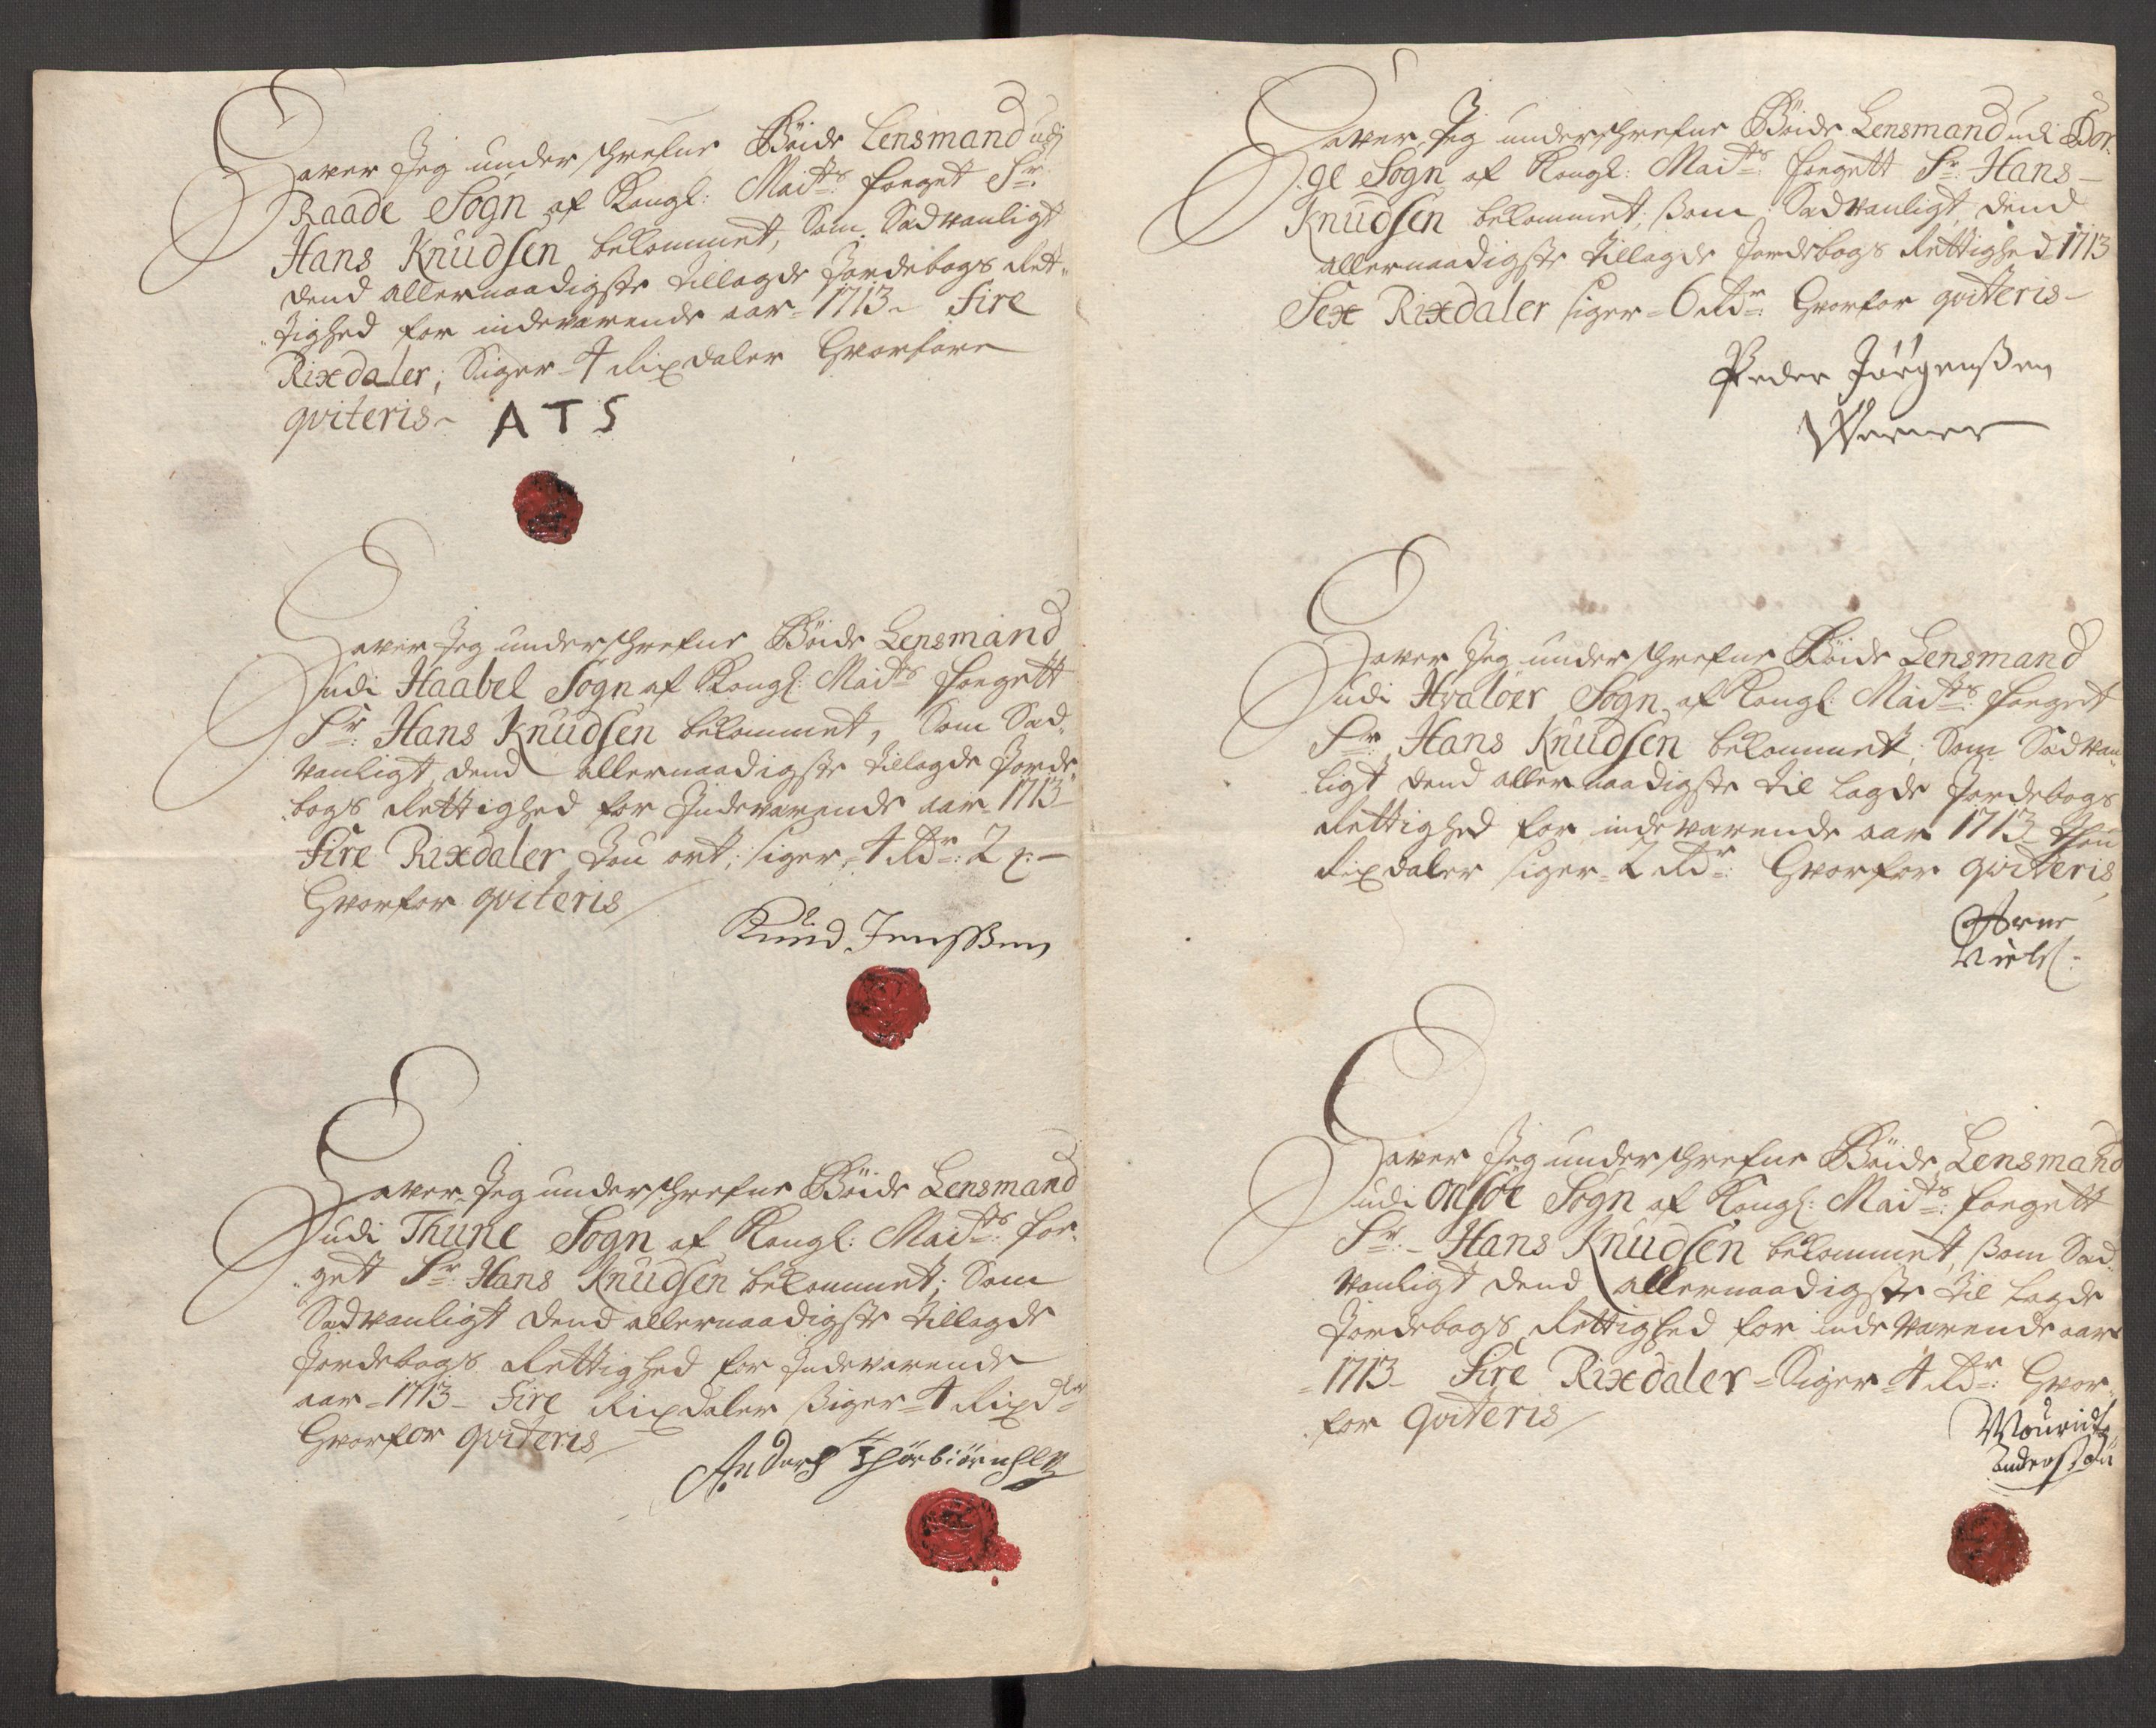 Haver Jeg underschrefne Böide Lensmand udj
Raade Sogn af Kongl: Maiᵗˢ: foeget Sr:
Hans Knudsen bekommet, Som Sædvanligt
dend allernaadigste tillagde Jordebogs Ret-
tighed for indeværende aar 1713 - Fire
Rixdaler, Siger 4 Rixdaler Hvorfore
qviteris - ATS
Haver Jeg underschrefne Böide Lensmand
udi Haabel Sogn af Kongl: Maiᵗˢ foegett
Sr: Hans Knudsen bekommet, Som Sæd-
vanligt, dend allernaadigste tillagde Jorde-
bogs Rettighed for Indeværende aar 1713
Fire Rixdaler tou ort, siger 4 Rdr: 2 -
Hvorfor qviteris
Knud Jenssen
Haver Jeg underschrefne Böide Lensmand
udi Thune Sogn af Kongl: Maiᵗˢ: foe-
get Sr: Hans Knudsen bekommet, Som
Sædvanligt dend allernaadigste tillagde
Jordebogs Rettighed for Indeværende
aar - 1713 - Fire Rixdaler Siger 4 Rixdr
Hvorfor qviteris
Anders Thorbiörnsen
Haver Jeg underschrefne Böide Lensmand udi Bor-
ge Sogn af Kongl: Maiᵗˢ: foegett Sr: Hans
Knudsen bekommet, Som Sædvanligt, dend
allernaadigste tillagde Jordebogs Rettighed 1713
Sex Rixdaler siger 6 Rdr: Hvorfor qviteris -
Peder Jörgenssen
Werner
Haver Jeg underschrefne Böide Lensmand
udi Hvalöer Sogn af Kongl: Maiᵗˢ: foeget
Sr: Hans Knudsen bekommet, Som Sædvan-
ligt dend allernaadigste til lagde Jordebogs
Rettighed for indeværende aar 1713 thou
Rixdaler siger 2 Rdr: Hvorfor qviteris
Arne
Niels:
Haver Jeg underschrefne Böide Lensmand
udi Onsöe Sogn af Kongl: Maiᵗˢ: foegett
Sr: - Hans Knudsen bekommet, Som Sæd-
vanligt dend allernaadigste til lagde
Jordebogs Rettighed for indeværende aar
1713 - Fire Rixdaler - Siger 4 Rdr: Hvor-
for qviteris
Mouridts
anderssøn